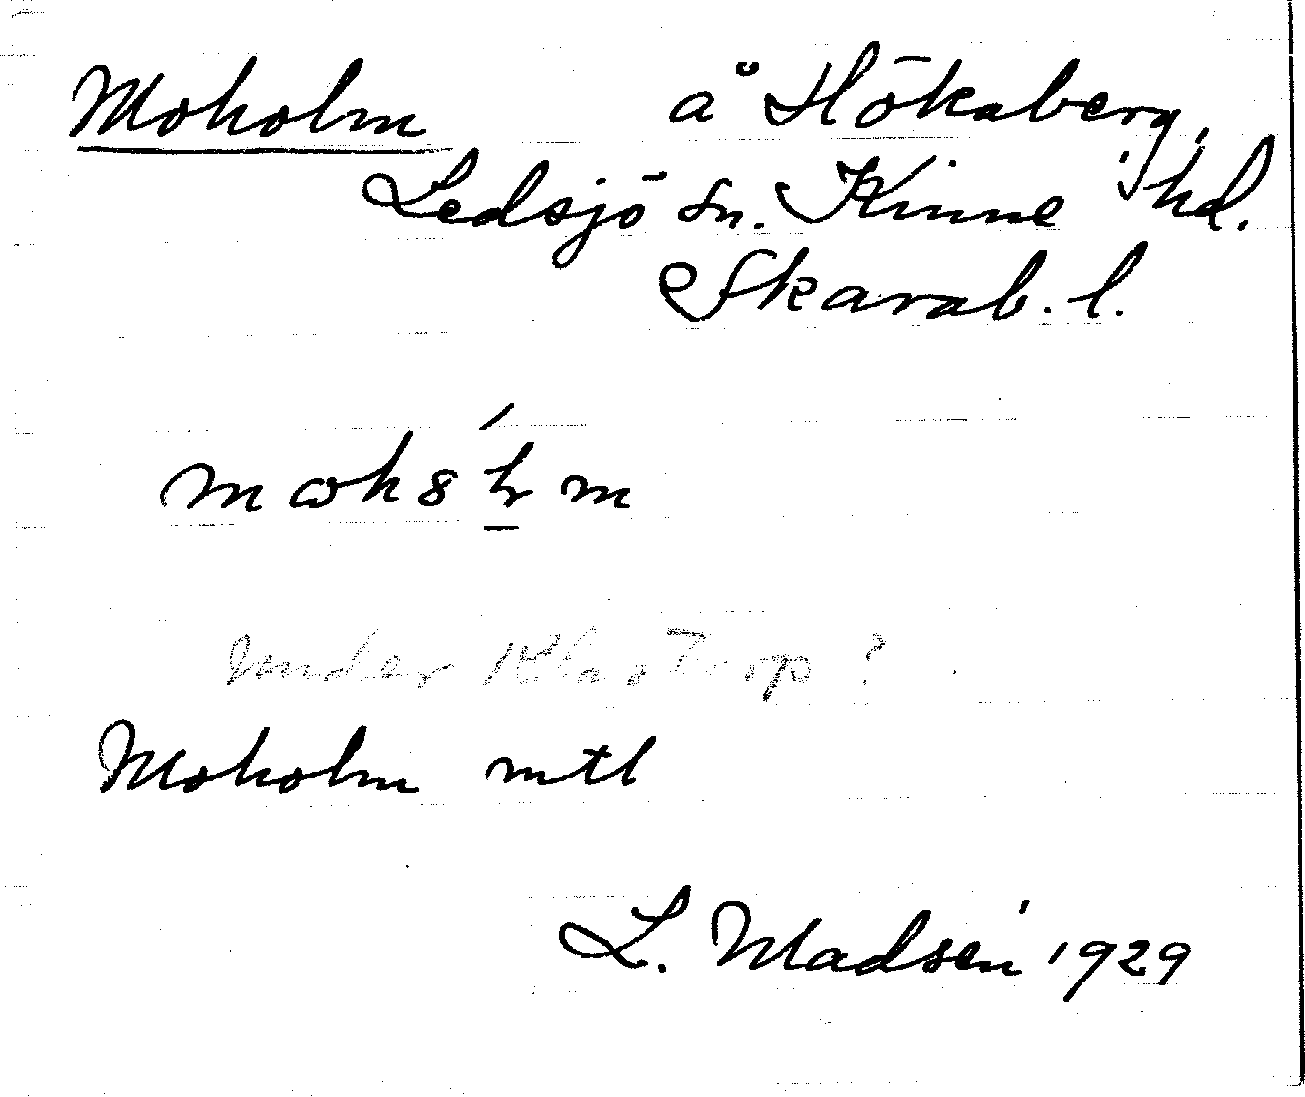 Moholm å Hökaberg,
Ledsjö sn. Kinne hd.
Skarab. l.
under Klastorp?
Moholm mtl
L. Madsén 1929